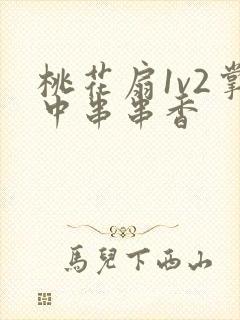 桃花扇1v2掌
中串串香
馬兒下西山